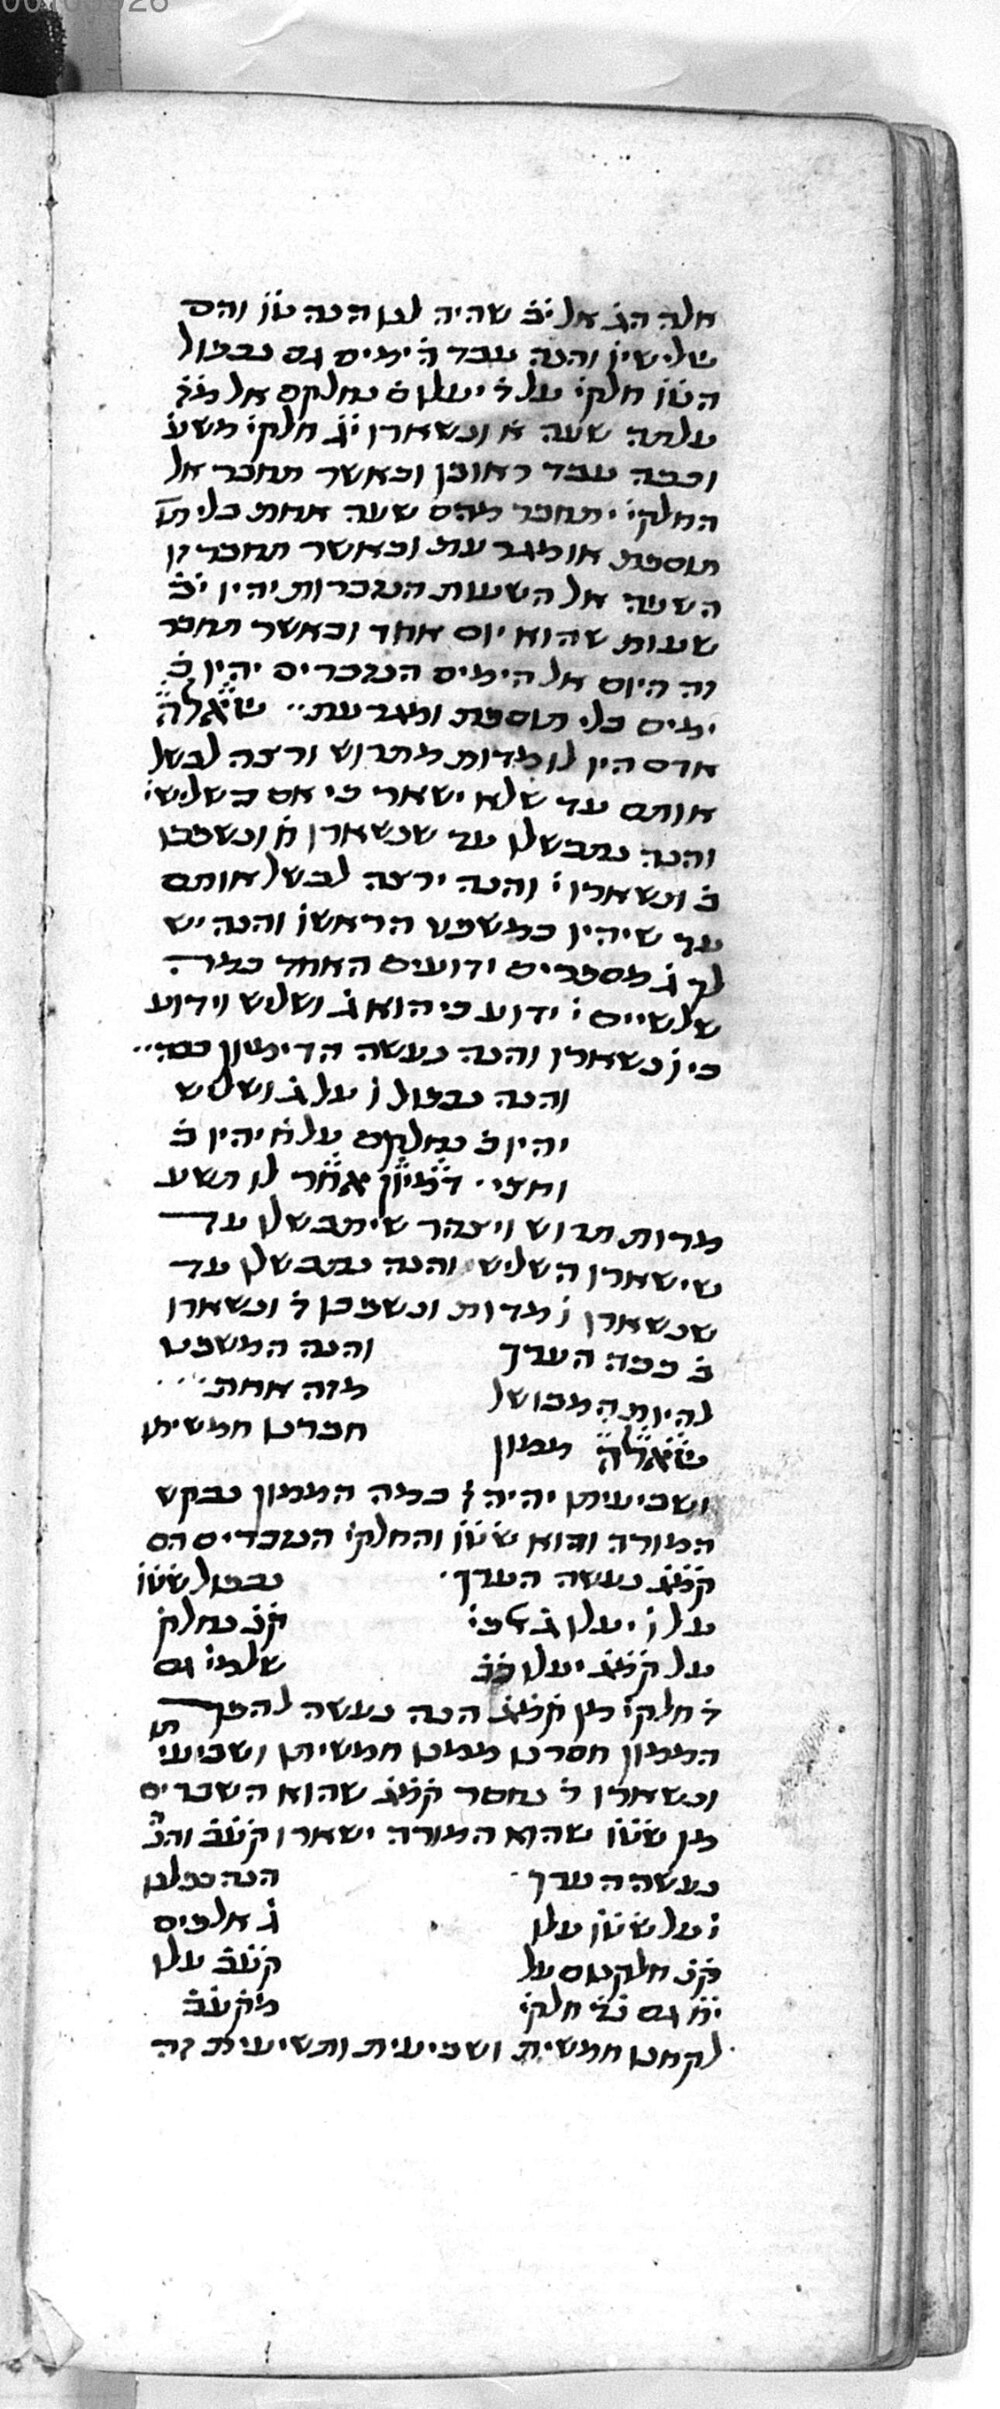 אלה הג אל יב שהיה לנו הנה טו והם
שלישיו והנה עבד ה ימים גם נכפול
הטו חלקי על ד יעלו ס נחלקם אל מז
עלתה שעה א ונשארו יג חלקי משע
וככה עבד ראובן וכאשר תחבר אל
החלקי יתחבר מהם שעה אחת בלי תו
תוספת או מגרעת וכאשר תחבר זו
השעה אל השעות הנזכרות יהיו יב
שעות שהוא יום אחד וכאשר תחבר
זה היום אל הימים הנזכרים יהיו כ
ימים בלי תוספת ומגרעת שאלה
אדם היו לו מדות מתרוש ורצה לבשל
אותם עד שלא ישאר כי אם השלישי
והנה נתבשלו עד שנשארו ח ונשפכו
ב ונשארו ו והנה ירצה לבשל אותם
עד שיהיו כמשפט הראשו והנה יש
לך ג מספרים ידועים האחד כמה
שלשיים י ידוע כי הוא ג ושליש וידוע
כי ו נשארו והנה נעשה הדימיון ככה
והנה נכפול ו על ג ושליש
יהיו כ נחלקם על ח יהיו ב
וחצי דמיון אחר לו תשע
מדות תרוש ויצהר שיתבשלו עד
שישארו השליש והנה נתבשלו עד
שנשארו ו מדות ונשפכו ד ונשארו
ב ככה הערך והנה המשפט
להיות המבושל מזה אחת
שאלה ממון חברנו חמשיתו
ושביעיתו יהיה ז כמה הממון נבקש
המורה והוא שטו והחלקי הנזכרים הם
קמג נעשה הערך נכפול שטו
על ו יעלו ג קנ נחלק
על קמג יעלו כב שלמי גם
ד חלקי מן קמג הנה נעשה להפך
הממון חסרנו ממנו חמשיתו ושביעיתו
ונשארו ד נחסר קמג שהוא השברים
מן שטו שהוא המורה ישארו קעב והנ
נעשה הערך הנה כפלנו
י על שטו עלו ג אלפים
קנ חלקנום על קעב עלו
יח גם נד חלקי מקעב
לקחנו חמשית ושביעית ותשיעית זה